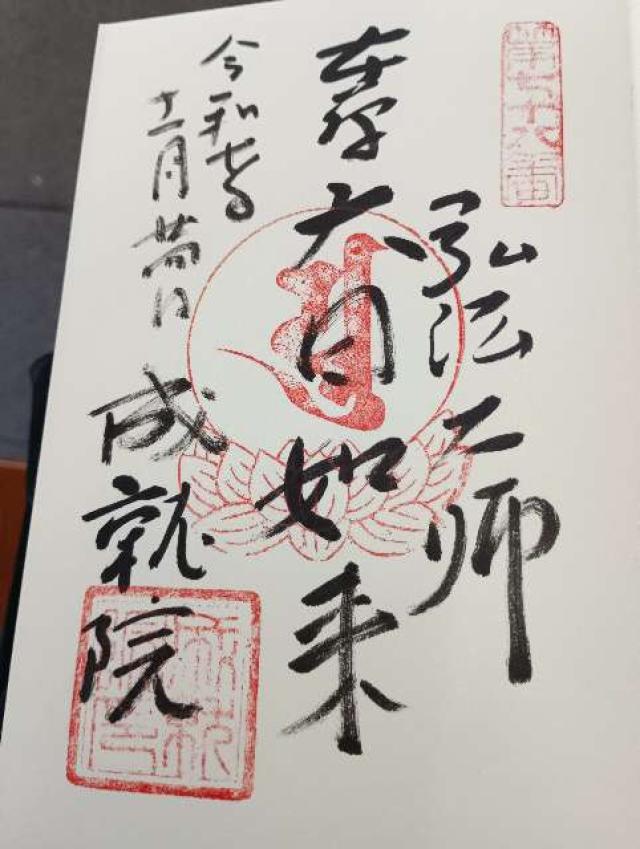 第七十八番
弘法大師
本尊大日如来
令和七年
十二月廿四日
成就院